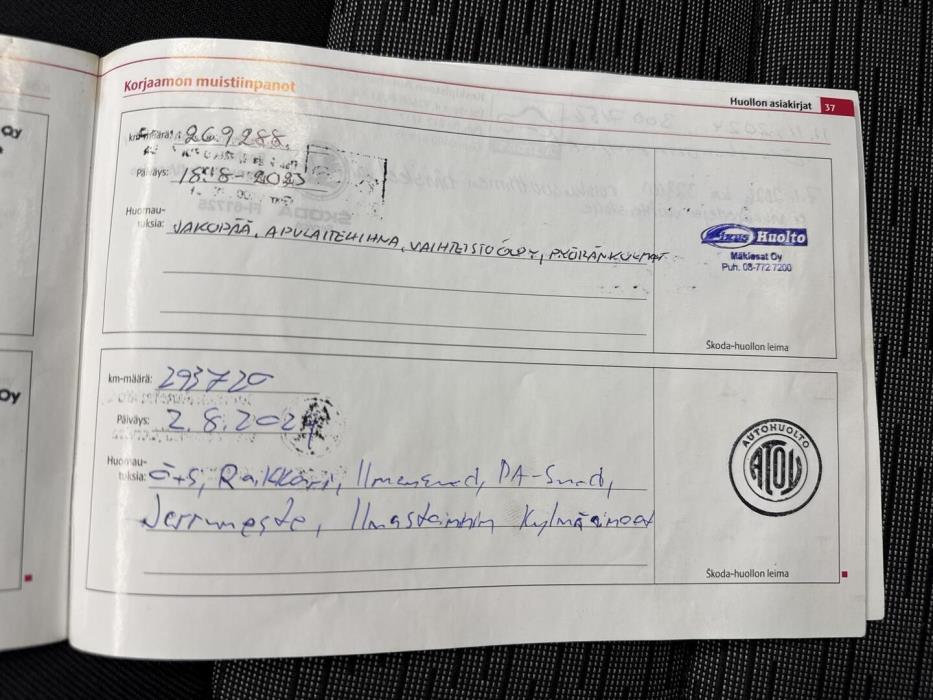 Korjaamon muistiinpanot
Huollon asiakirjat 37
km-määrä: 269288
Päiväys: 18.8-2023
Huomau-
tuksia: JAKOPÄÄ, APULAITEHIHNA, VAIHTEISTOÖLJY, PYÖRÄNKULMAT
Huolto
Mäkiesat Oy
Puh. 08-772 7200
Škoda-huollon leima
km-määrä: 293720
Päiväys: 2.8.202
Huomau-
tuksia: Ö+S, Raikkari, Ilmansuod, PA-Suod,
Jarruneste, Ilmastoinnin Kylmäaineet
AUTOHUOLTO
ATOY
Škoda-huollon leima
Oy
Oy